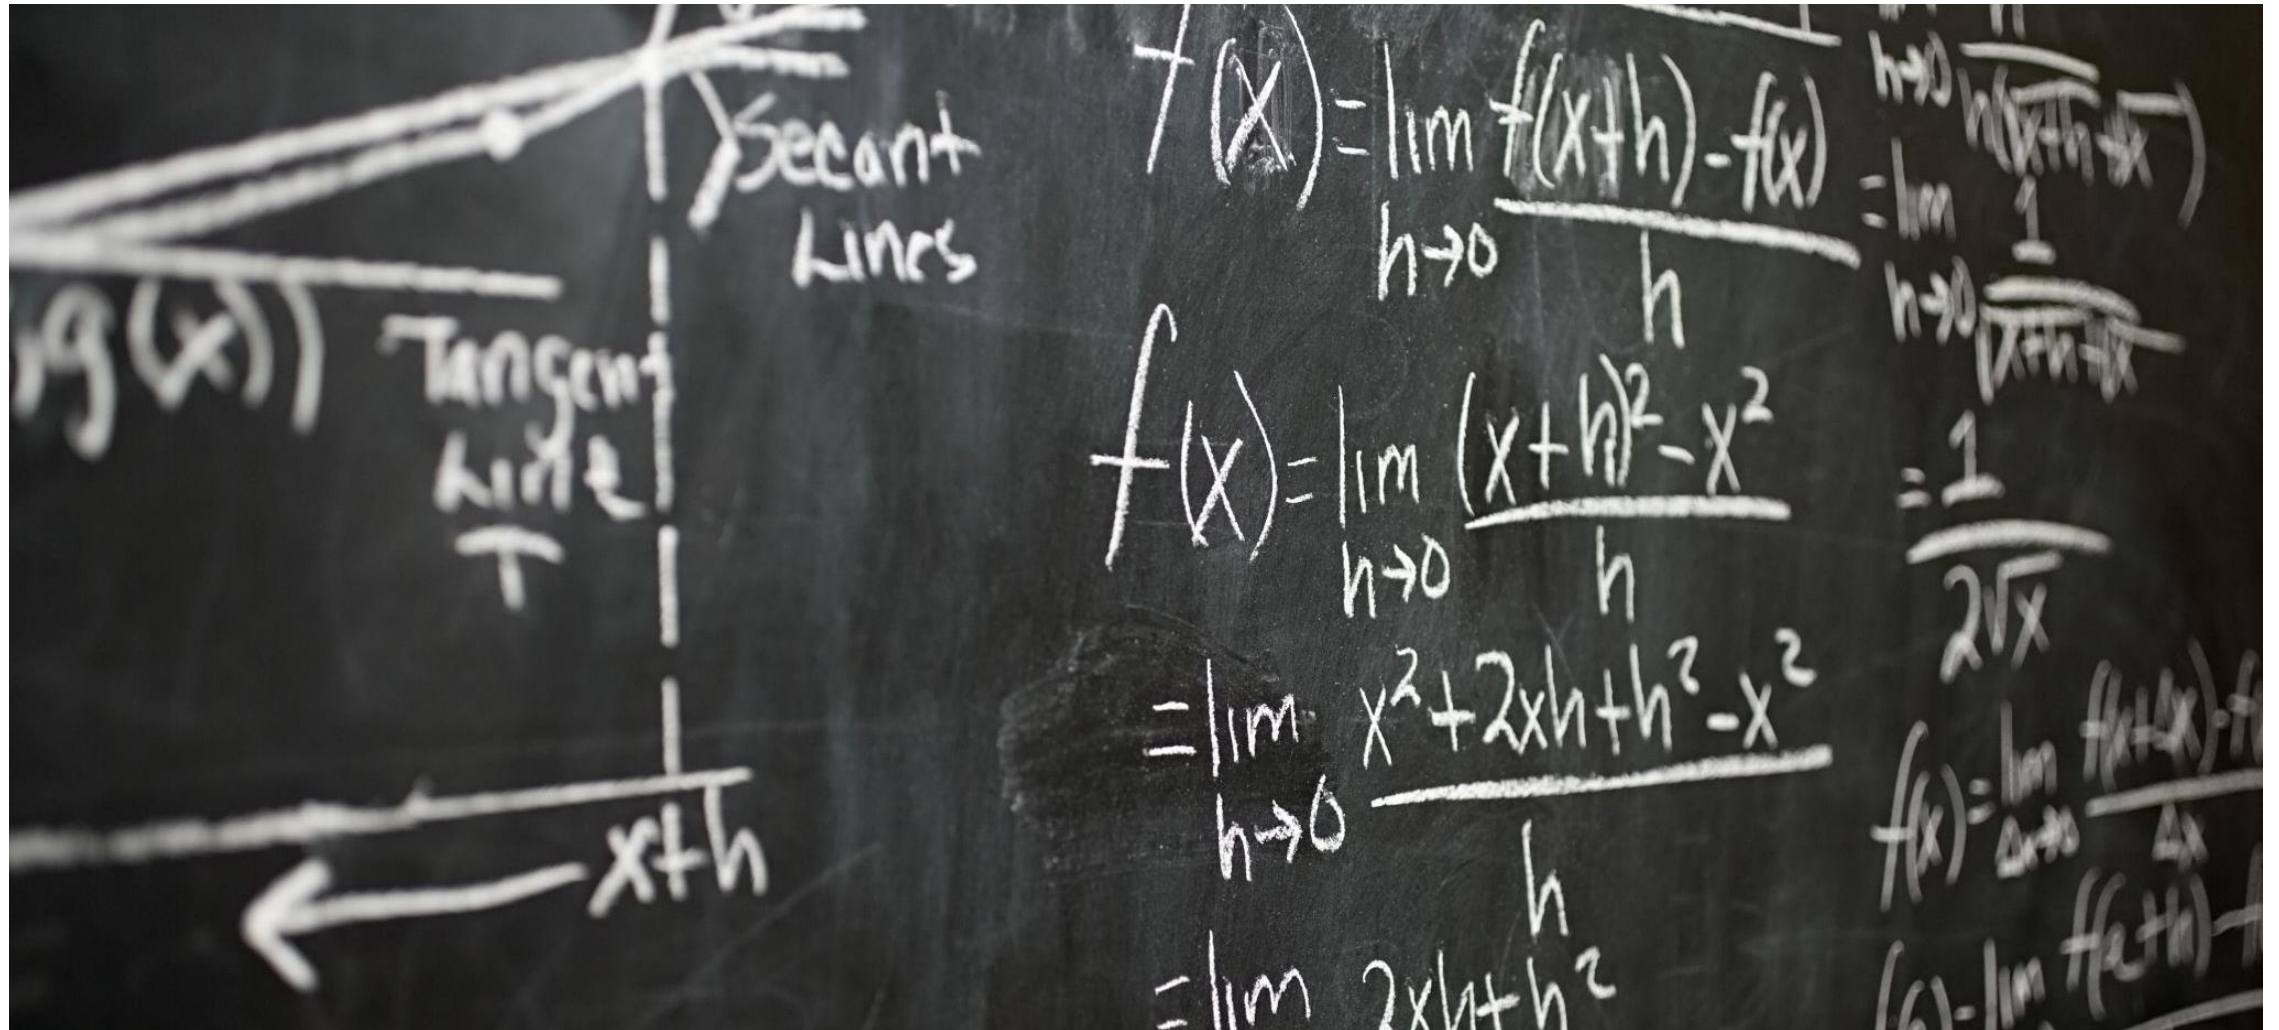 Secant
Lines
g(x))
Tangent
Line
T
x+h
f(x) = lim f(x+h) - f(x)
h→0 h
f(x) = lim (x+h)² - x²
h→0 h
= lim x² + 2xh + h² - x²
h→0 h
= lim 2xh + h²
h→0 h(√x+h+√x)
= lim 1
h→0 √x+h+√x
= 1
2√x
f(x) = lim f(x+Δx) - f
Δx→0 Δx
lim f(a+h) - f